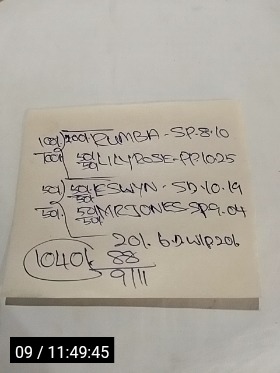 100/ 200/ RUMBA - SP. 8.10
100/ 50/ 50/ LILYROSE - PP. 10.25
50/ 50/ 50/ ESWYN - SD. 10.19
50/ 50/ 50/ MRJONES SP 9.04
20/. 6.DWIP206
1040/ 88
9/11
09 / 11:49:45